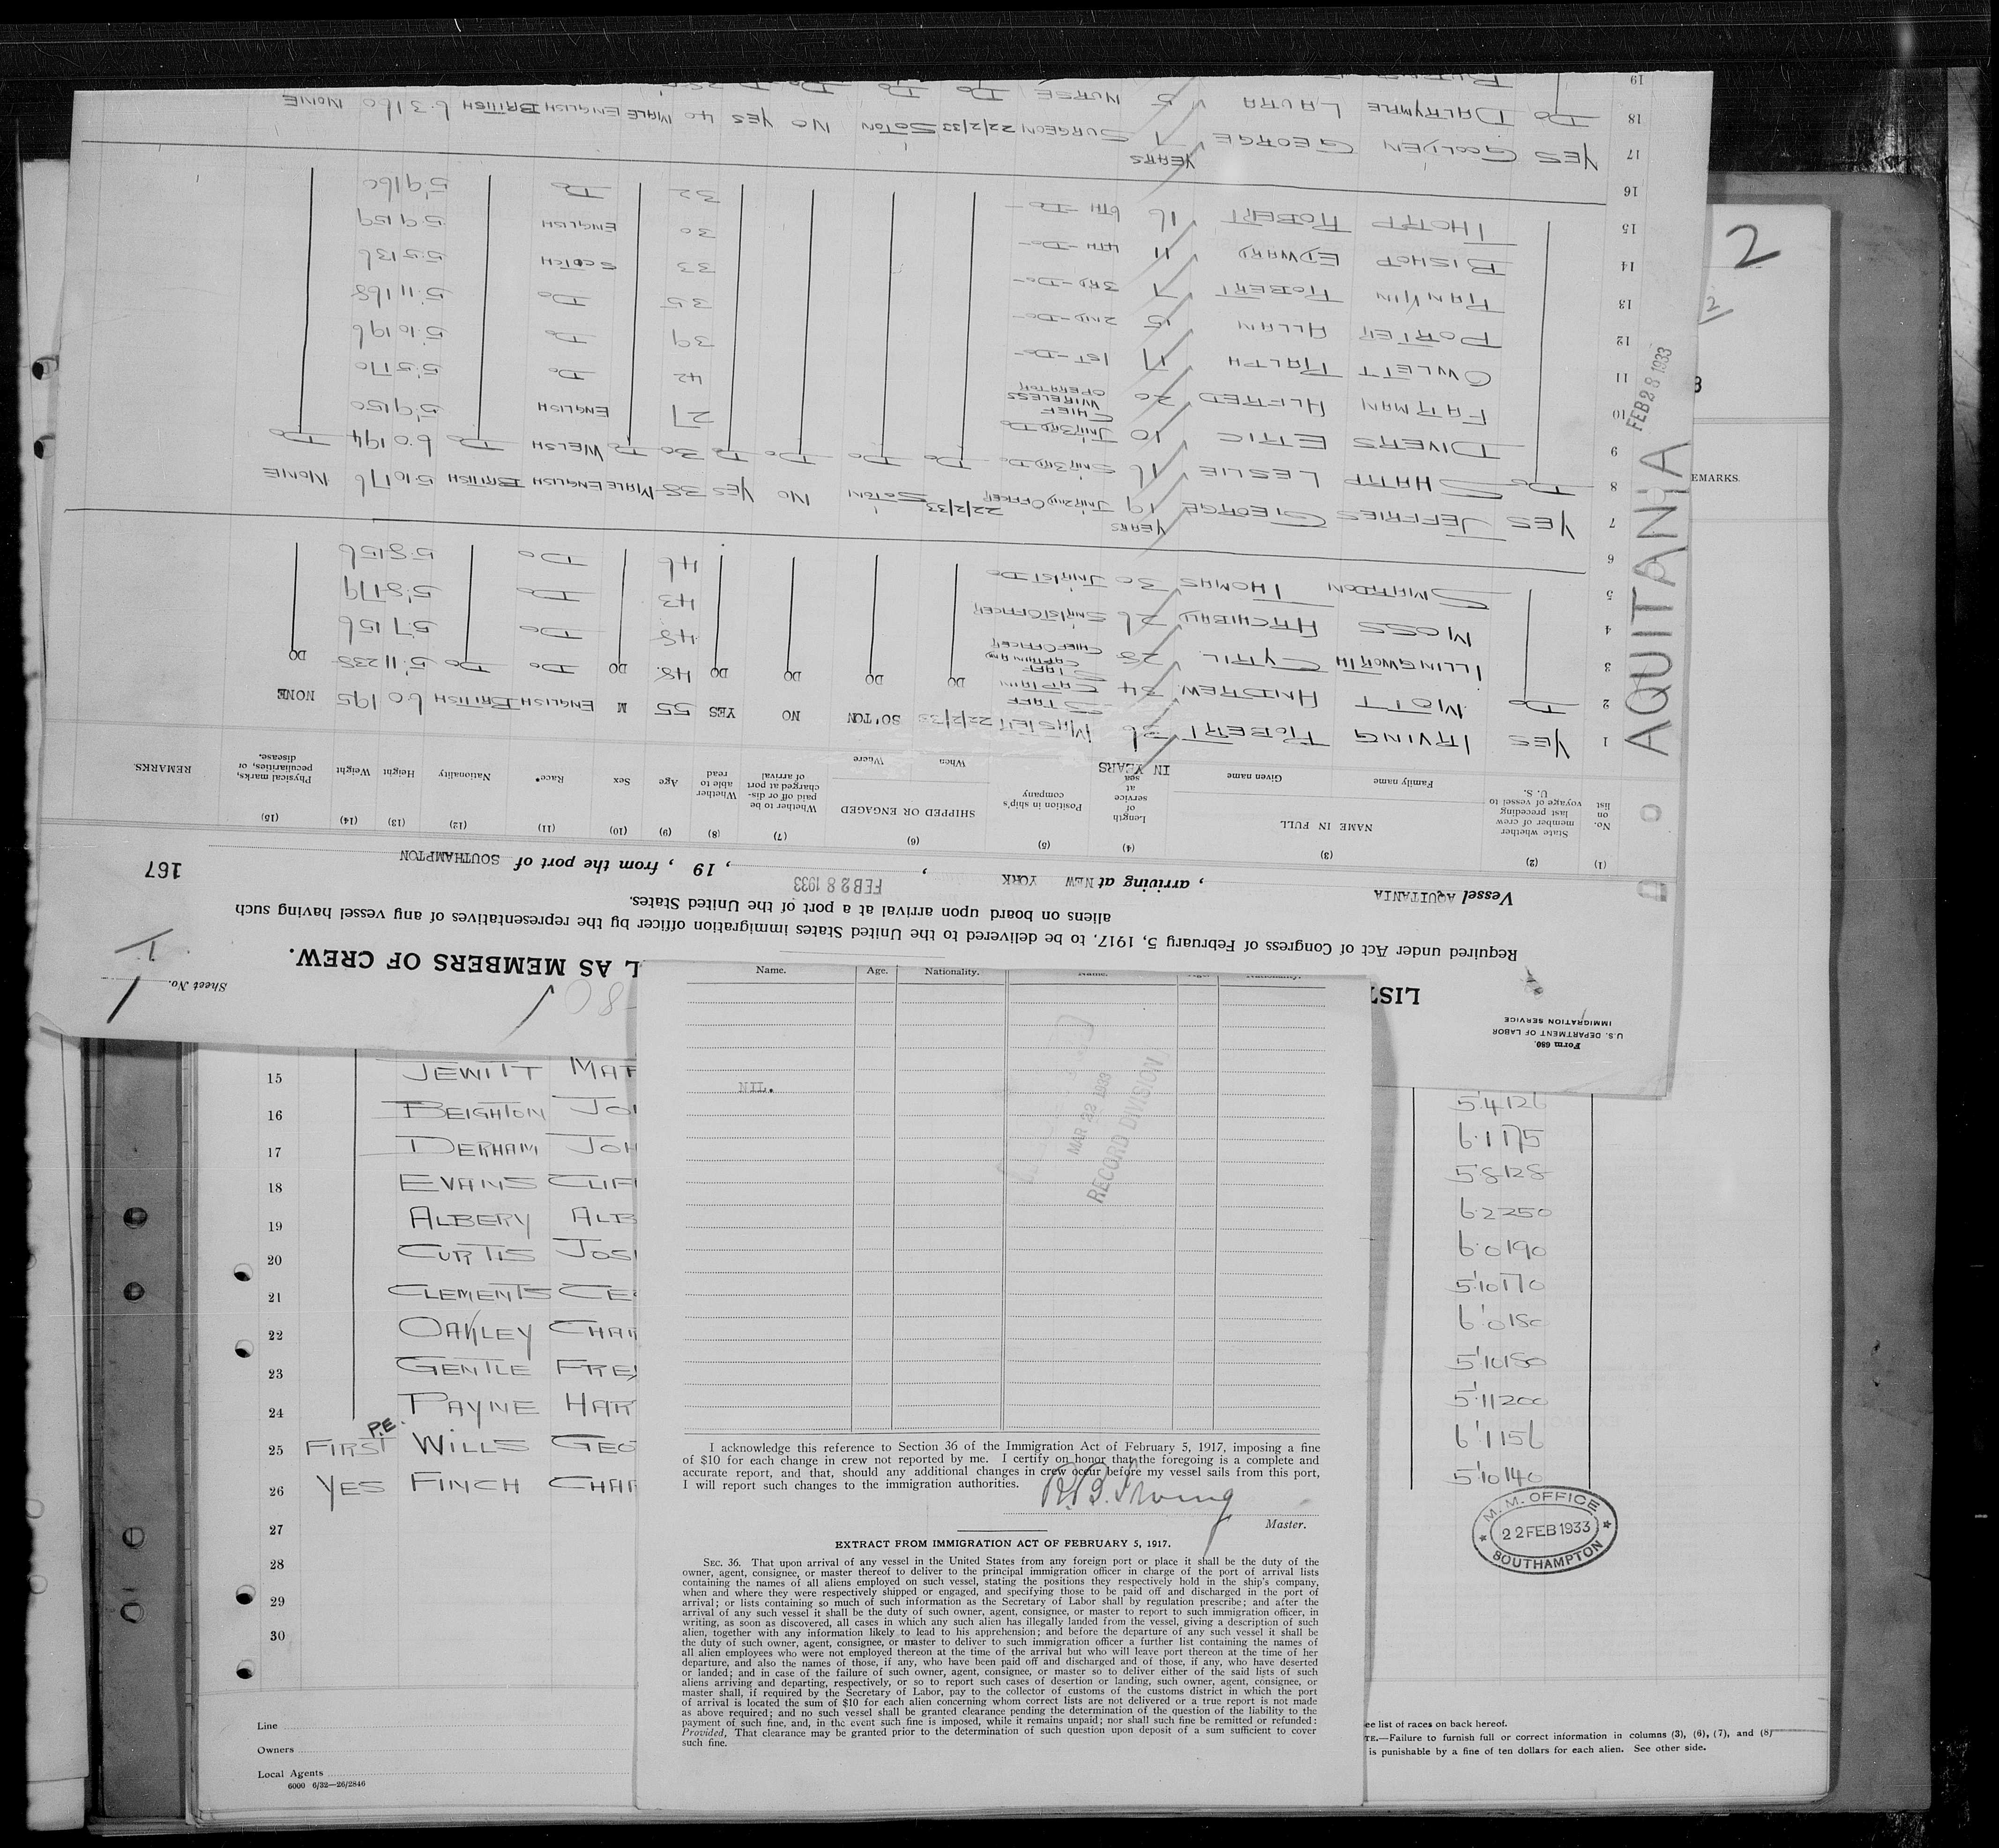 Form 680.
U.S. DEPARTMENT OF LABOR
IMMIGRATION SERVICE
LIST
L AS MEMBERS OF CREW.
Sheet No. 1
Required under Act of Congress of February 5, 1917, to be delivered to the United States immigration officer by the representatives of any vessel having such
aliens on board upon arrival at a port of the United States.
Vessel AQUITANIA, arriving at NEW YORK, FEB 28 1933, 19 , from the port of SOUTHAMPTON
167
(1) (2) (3) (4) (5) (6) (7) (8) (9) (10) (11) (12) (13) (14) (15)
No. on list
State whether member of crew last preceding voyage of vessel to U. S.
NAME IN FULL
Family name Given name
Length of service at sea
IN YEARS
Position in ship's company
SHIPPED OR ENGAGED
When Where
Whether to be paid off or discharged at port of arrival
Whether able to read
Age
Sex
Race*
Nationality
Height
Weight
Physical marks, peculiarities, or disease.
REMARKS.
1 YES IRVING ROBERT 36 MASTER 22/2/33 SO'TON NO YES 55 M ENGLISH BRITISH 6.0 195 NONE
2 Do MOTT ANDREW 34 STAFF CAPTAIN DO DO DO DO 48 DO Do Do 5.11 238 DO
3 ILLINGWORTH CYRIL 28 STAFF CAPTAIN AND CHIEF OFFICER 48 Do 5.7 156
4 MOSS ARCHIBALD 26 SNR 1ST OFFICER 43 Do 5.8 179
5 SMARDON THOMAS 30 JNR 1ST Do 46 Do 5.8 156
6
YEARS
7 YES JEFFRIES GEORGE 19 JNR 2ND OFFICER 22/2/33 SOTON NO YES 38 MALE ENGLISH BRITISH 5.10 176 NONE
8 Do SHARP LESLIE 16 SNR 3RD Do Do Do Do Do 30 Do WELSH Do 6.0 194 Do
9 DIVERS ERIC 10 JNR 3RD Do 27 ENGLISH 5.9 150
10 FARMAN ALFRED 20 CHIEF WIRELESS OPERATOR 42 Do 5.5 170
11 OWLETT RALPH 17 1ST - Do - 39 Do 5.10 196
12 PORTER ALLAN 15 2ND - Do - 35 Do 5.11 168
13 RANKIN ROBERT 7 3RD - Do - 33 SCOTCH 5.5 136
14 BISHOP EDWARD 11 4TH - Do - 30 ENGLISH 5.9 159
15 THORP ROBERT 16 6TH - Do - 32 Do 5.9 160
16
YEARS
17 YES GOOLDEN GEORGE 7 SURGEON 22/2/33 SOTON NO YES 40 MALE ENGLISH BRITISH 6.3 160 NONE
18 Do DALRYMPLE LAURA 5 NURSE Do Do Do Do
19
AQUITANIA
FEB 28 1933
2
2
EMARKS.
15 JEWITT MAT
16 BEIGHTON JO 5.4 126
17 DERHAM JOH 6.1 175
18 EVANS CLIF 5.8 128
19 ALBERY ALB 6.2 250
20 CURTIS JOS 6.0 190
21 CLEMENTS CE 5.10 170
22 OAKLEY CHAR 6.0 180
23 GENTLE FRE 5.10 180
24 PAYNE HAR 5.11 200
P.E.
25 FIRST WILLS GEO 6.1 156
26 YES FINCH CHAR 5.10 140
27
28
29
30
M. M. OFFICE
22 FEB 1933
SOUTHAMPTON
Line
Owners
Local Agents
6000 6/32—26/2846
ee list of races on back hereof.
TE.—Failure to furnish full or correct information in columns (3), (6), (7), and (8)
is punishable by a fine of ten dollars for each alien. See other side.
Name. Age. Nationality. Name. Nationality.
NIL.
MAR 22 1933
RECORD DIVISION
I acknowledge this reference to Section 36 of the Immigration Act of February 5, 1917, imposing a fine
of $10 for each change in crew not reported by me. I certify on honor that the foregoing is a complete and
accurate report, and that, should any additional changes in crew occur before my vessel sails from this port,
I will report such changes to the immigration authorities.
R.B. Irving
Master.
EXTRACT FROM IMMIGRATION ACT OF FEBRUARY 5, 1917.
SEC. 36. That upon arrival of any vessel in the United States from any foreign port or place it shall be the duty of the
owner, agent, consignee, or master thereof to deliver to the principal immigration officer in charge of the port of arrival lists
containing the names of all aliens employed on such vessel, stating the positions they respectively hold in the ship's company,
when and where they were respectively shipped or engaged, and specifying those to be paid off and discharged in the port of
arrival; or lists containing so much of such information as the Secretary of Labor shall by regulation prescribe; and after the
arrival of any such vessel it shall be the duty of such owner, agent, consignee, or master to report to such immigration officer, in
writing, as soon as discovered, all cases in which any such alien has illegally landed from the vessel, giving a description of such
alien, together with any information likely to lead to his apprehension; and before the departure of any such vessel it shall be
the duty of such owner, agent, consignee, or master to deliver to such immigration officer a further list containing the names of
all alien employees who were not employed thereon at the time of the arrival but who will leave port thereon at the time of her
departure, and also the names of those, if any, who have been paid off and discharged and of those, if any, who have deserted
or landed; and in case of the failure of such owner, agent, consignee, or master so to deliver either of the said lists of such
aliens arriving and departing, respectively, or so to report such cases of desertion or landing, such owner, agent, consignee, or
master shall, if required by the Secretary of Labor, pay to the collector of customs of the customs district in which the port
of arrival is located the sum of $10 for each alien concerning whom correct lists are not delivered or a true report is not made
as above required; and no such vessel shall be granted clearance pending the determination of the question of the liability to the
payment of such fine, and, in the event such fine is imposed, while it remains unpaid; nor shall such fine be remitted or refunded:
Provided, That clearance may be granted prior to the determination of such question upon deposit of a sum sufficient to cover
such fine.